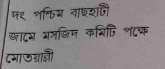 দং পশ্চিম বাছহাটী
জামে মসজিদ কমিটি পক্ষে
মোতওয়াল্লী